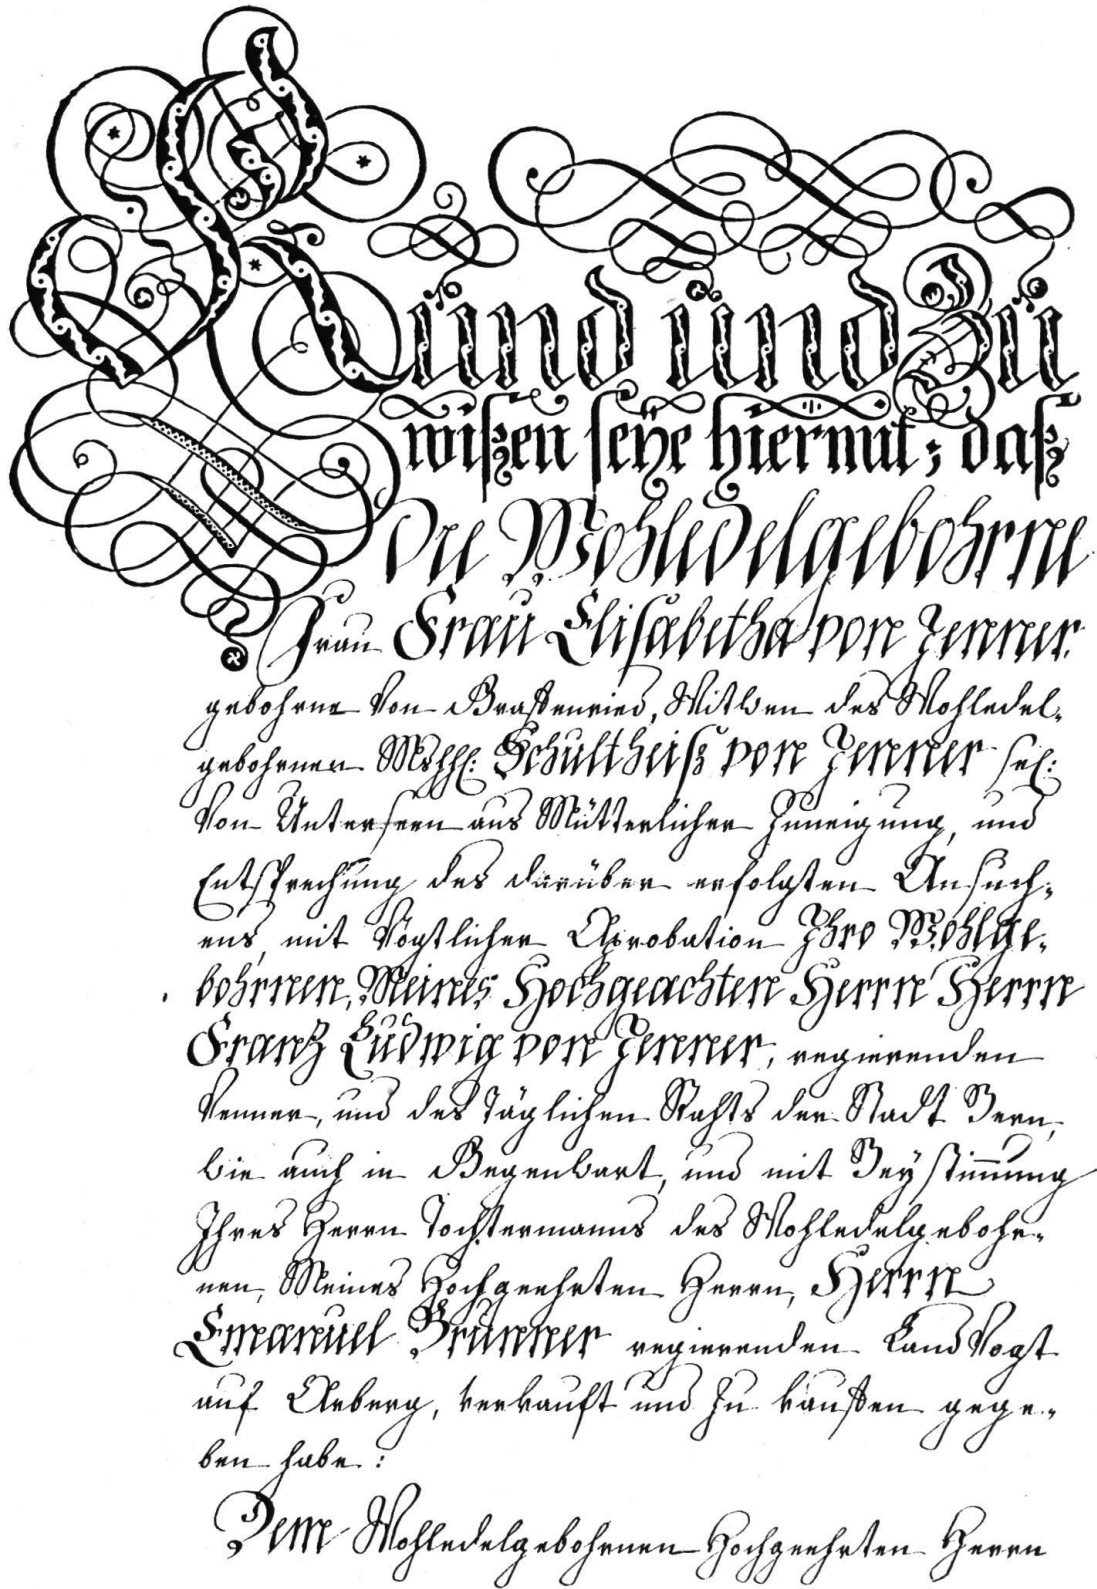 Kund und Zu
wißen seÿe hiermit; daß
Die Wohledelgebohrne
Frau Frau Elisabetha von Jenner.
gebohrne von Graffenried, Witwen des Wohledel-
gebohrnen Mshhl: Schultheiß von Jenner sel:
von Unterseen aus Mütterlicher Zuneigung, und
Entsprechung des darüber erfolgten Ansuch-
ens, mit Vögtlicher Aprobation Ihro Wohlge-
bohrnen, Meines Hochgeachten Herrn Herrn
Frantz Ludwig von Jenner, regierenden
Venner, und des Täglichen Rahts der Stadt Bern,
wie auch in Gegenwart, und mit Beystimmung
Ihres Herrn Tochtermanns des Wohledelgebohr-
nen, Meines Hochgeehrten Herrn, Herrn
Emanuel Brunner regierenden LandVogt
auf Arberg, verkauft und zu kauffen gege-
ben habe:
Dem Wohledelgebohrnen Hochgeehrten Herrn